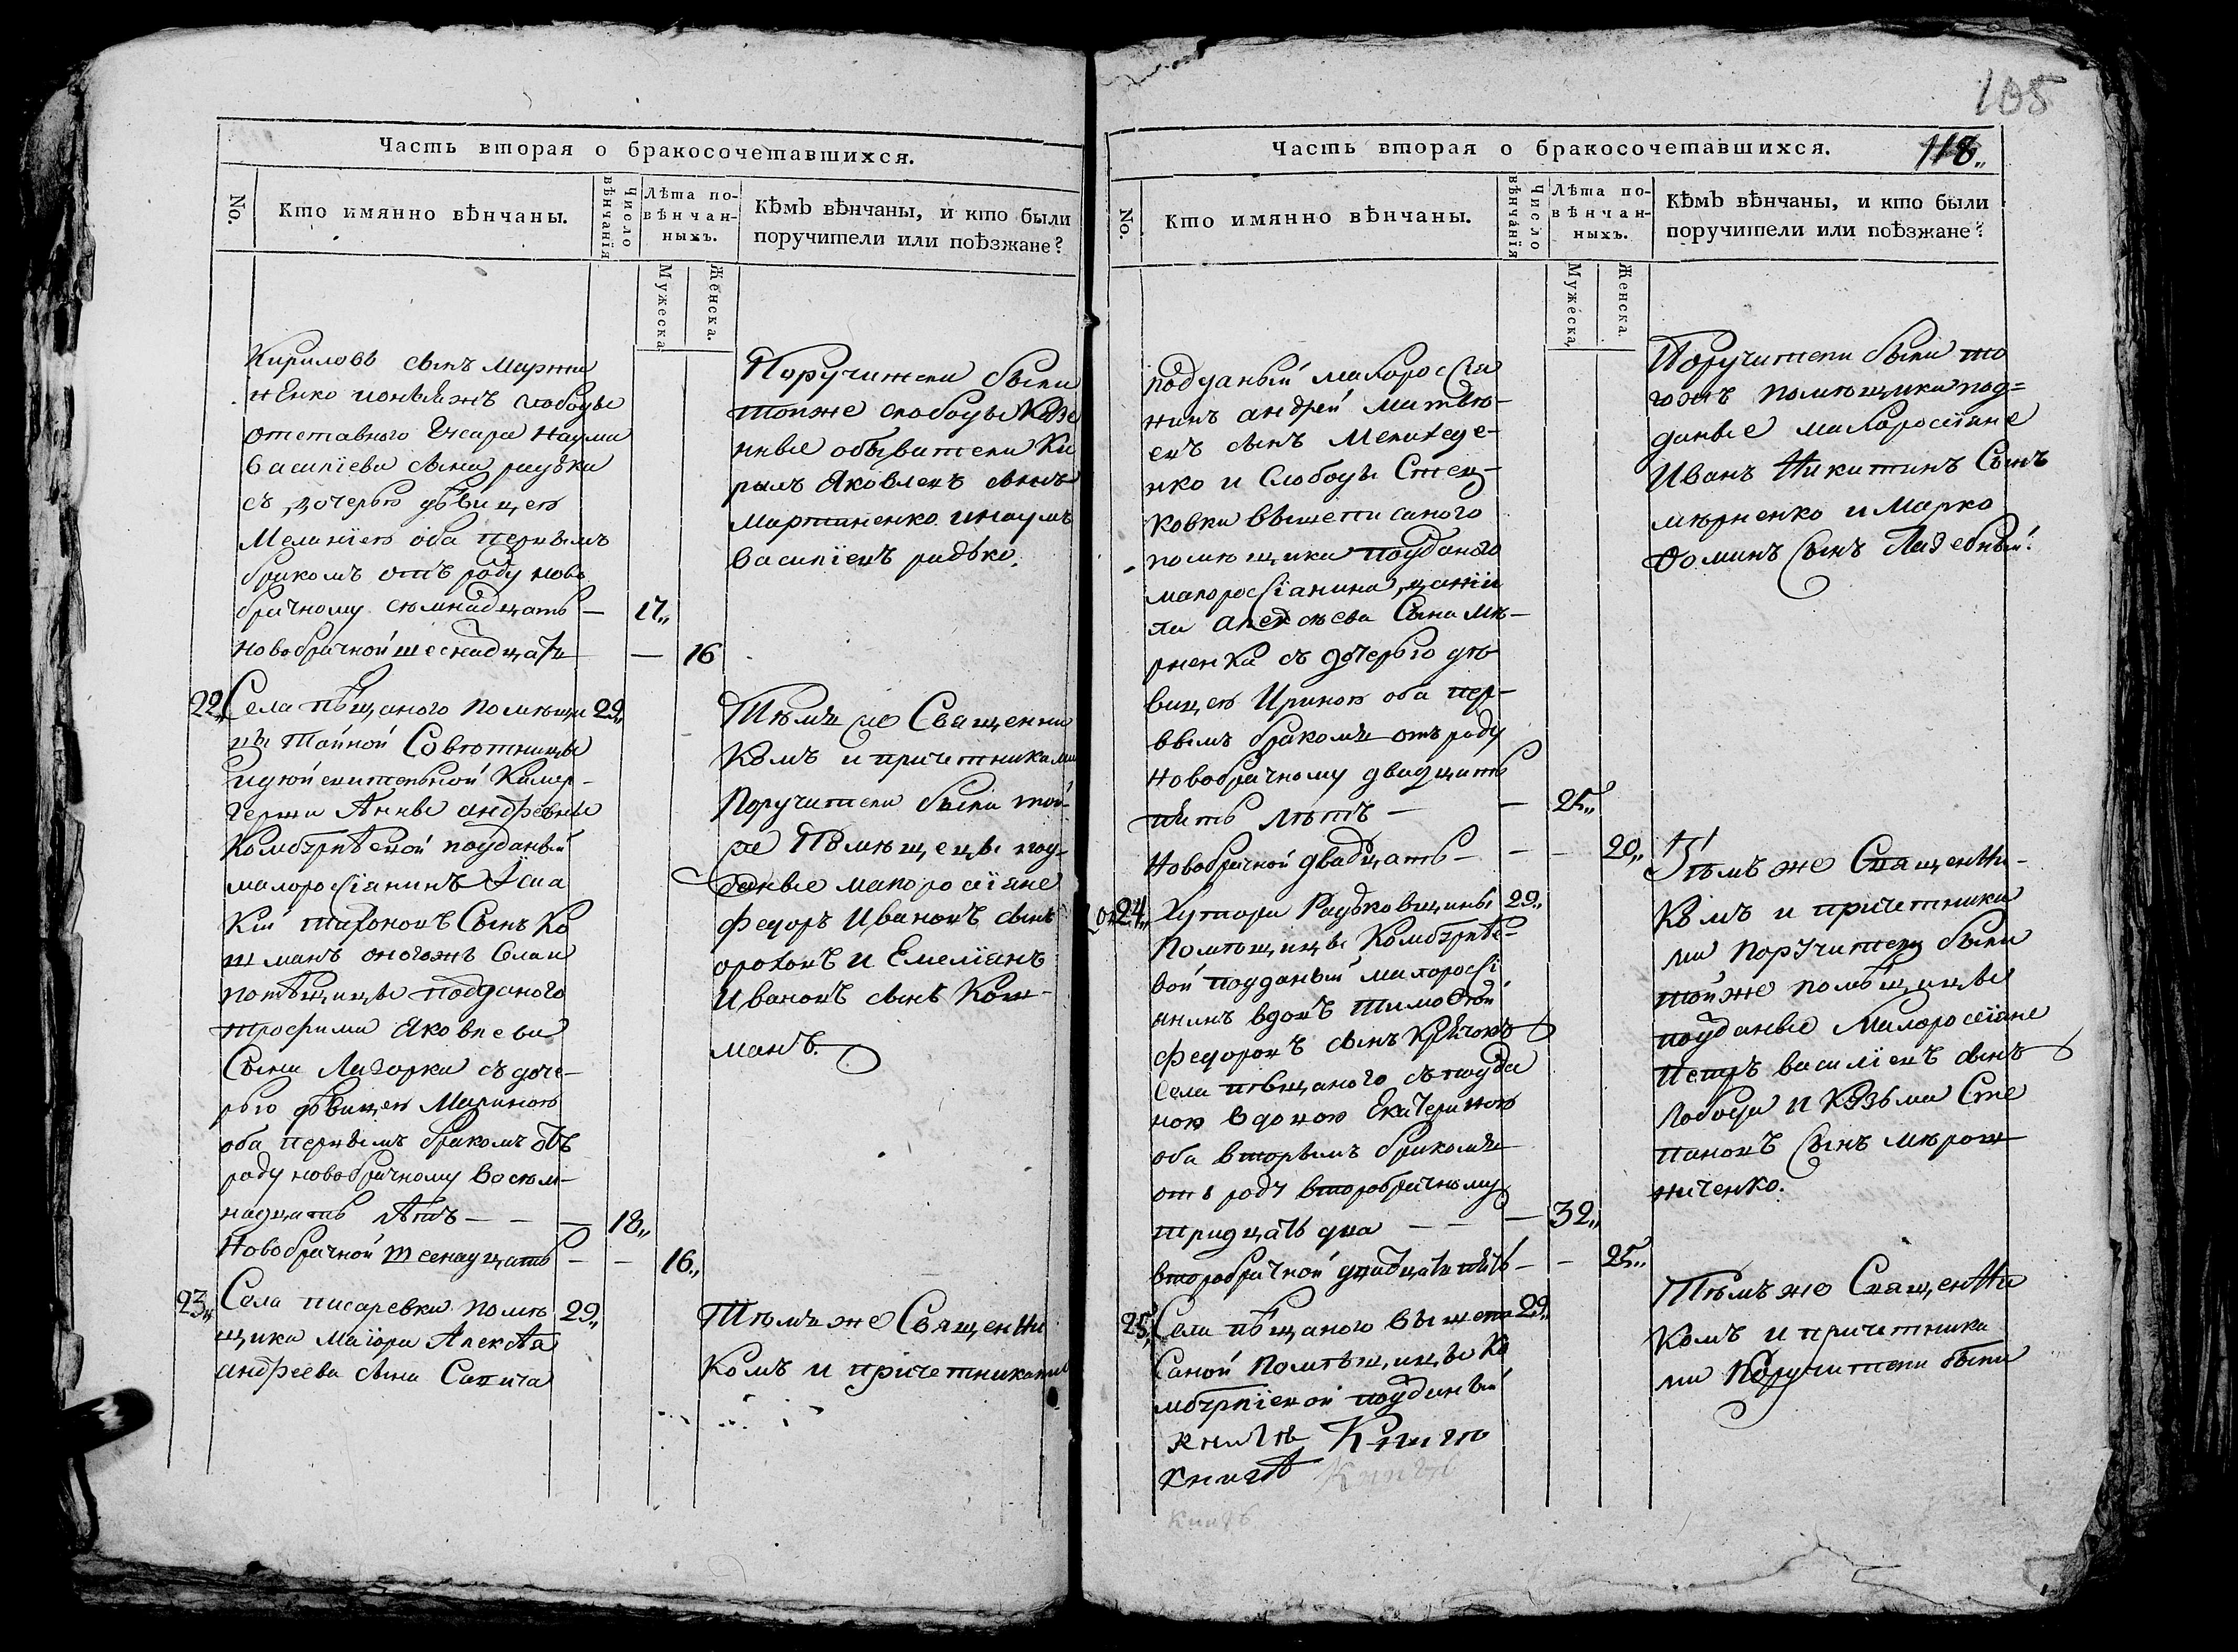 105
Часть вторая о бракосочетавшихся.
No.
Кто имянно вѣнчаны.
Число вѣнчанїя
Лѣта повѣнчанныхъ.
Мужеска
Женска.
Кѣмъ вѣнчаны, и кто были
поручители или поѣзжане?
Кириловъ сынъ Марти
ненко тояжъ слободы
отставного Наума
василїева сына радька
съ дочерью дѣвицею
Меланїею оба первымъ
бракомъ отъ роду ново
брачному семнадцать — 17„
новобрачной шеснадцати — 16
Поручители были
тойже слободы казе
нные обыватели Ки
рилъ Яковлевъ сынъ
Мартиненко и наумъ
василїевъ радько.
22„ Села пѣщаного помѣщи 29„
цы тайной Совѣтницы
Камер-
герши Анны андреевны
Комбурлѣевой подданый
малоросїанинъ
кїй тихоновъ Сынъ Ко
шманъ оногожъ Села
помѣщицы подданого
трофима Яковлева
Сына съ доче-
рью дѣвицею Мариною
оба первымъ бракомъ отъ
роду новобрачному восем-
надцать лѣтъ — — — 18„
Новобрачной шеснадцать — — 16„
Тѣмъ же Священни
комъ и причетниками
Поручители были той
же Помѣщецы под-
даные малоросїяне
Федоръ Ивановъ сынъ
ороховъ и Емелїянъ
Ивановъ сынъ Кош-
манъ.
23„ Села писаревки помѣ 29„
щика маїора Алексѣя
андреева сына
Тѣмъ же Священни
комъ и причетниками
Часть вторая о бракосочетавшихся.
118„
No.
Кто имянно вѣнчаны.
Число вѣнчанїя
Лѣта повѣнчанныхъ.
Мужеска,
Женска.
Кѣмъ вѣнчаны, и кто были
поручители или поѣзжане?
подданый малоросїа
нинъ андрей Матвѣ-
евъ сынъ Мелихеде-
нко и Слободы Стец-
ковки вышеписаного
помѣщика подданого
малоросїанина данїи
ла алексѣева Сына Мѣ-
рненка съ дочерью дѣ-
вицею Ириною оба пер-
вымъ бракомъ отъ роду
новобрачному двадцать
пять лѣтъ — — 25„
Новобрачной двадцать — — — 20„
Поручители были то
гожъ помѣщика под=
даные малоросїяне
Иванъ Никитинъ Сынъ
мѣрненко и Марко
Фоминъ Сынъ Лазебный.
24„ Хутора Радьковщины 29„
помѣщицы Комбурлѣе-
вой подданый малоросї
анинъ вдовъ тимофей
Федоровъ сынъ
Села пѣщаного съ подда
ною вдовою Екатериною
оба вторымъ бракомъ
отъ роду второбрачному
тридцать два — — — 32„
второбрачной двадцать пять — — 25„
Тѣмъ же Священни-
комъ и причетника
ми поручители были
той же помѣщицы
подданые Малоросїяне
петръ василїевъ сынъ
Лобода и Козьма Сте
пановъ Сынъ мѣрош
ниченко.
25„ Села пѣщаного вышепи 29„
саной помѣщицы Ко
мбурлїевой подданый
книгѣ Книгѣ
книгѣ Книгѣ
Книгѣ
Тѣмъ же Священни
комъ и причетника
ми поручители были